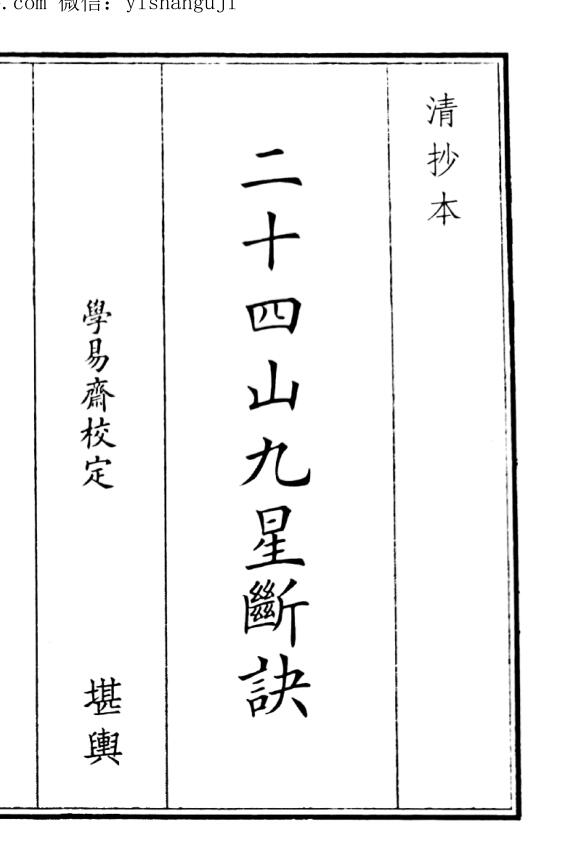 .com 微信：yishanguji
清抄本
二十四山九星斷訣
學易齋校定
堪輿